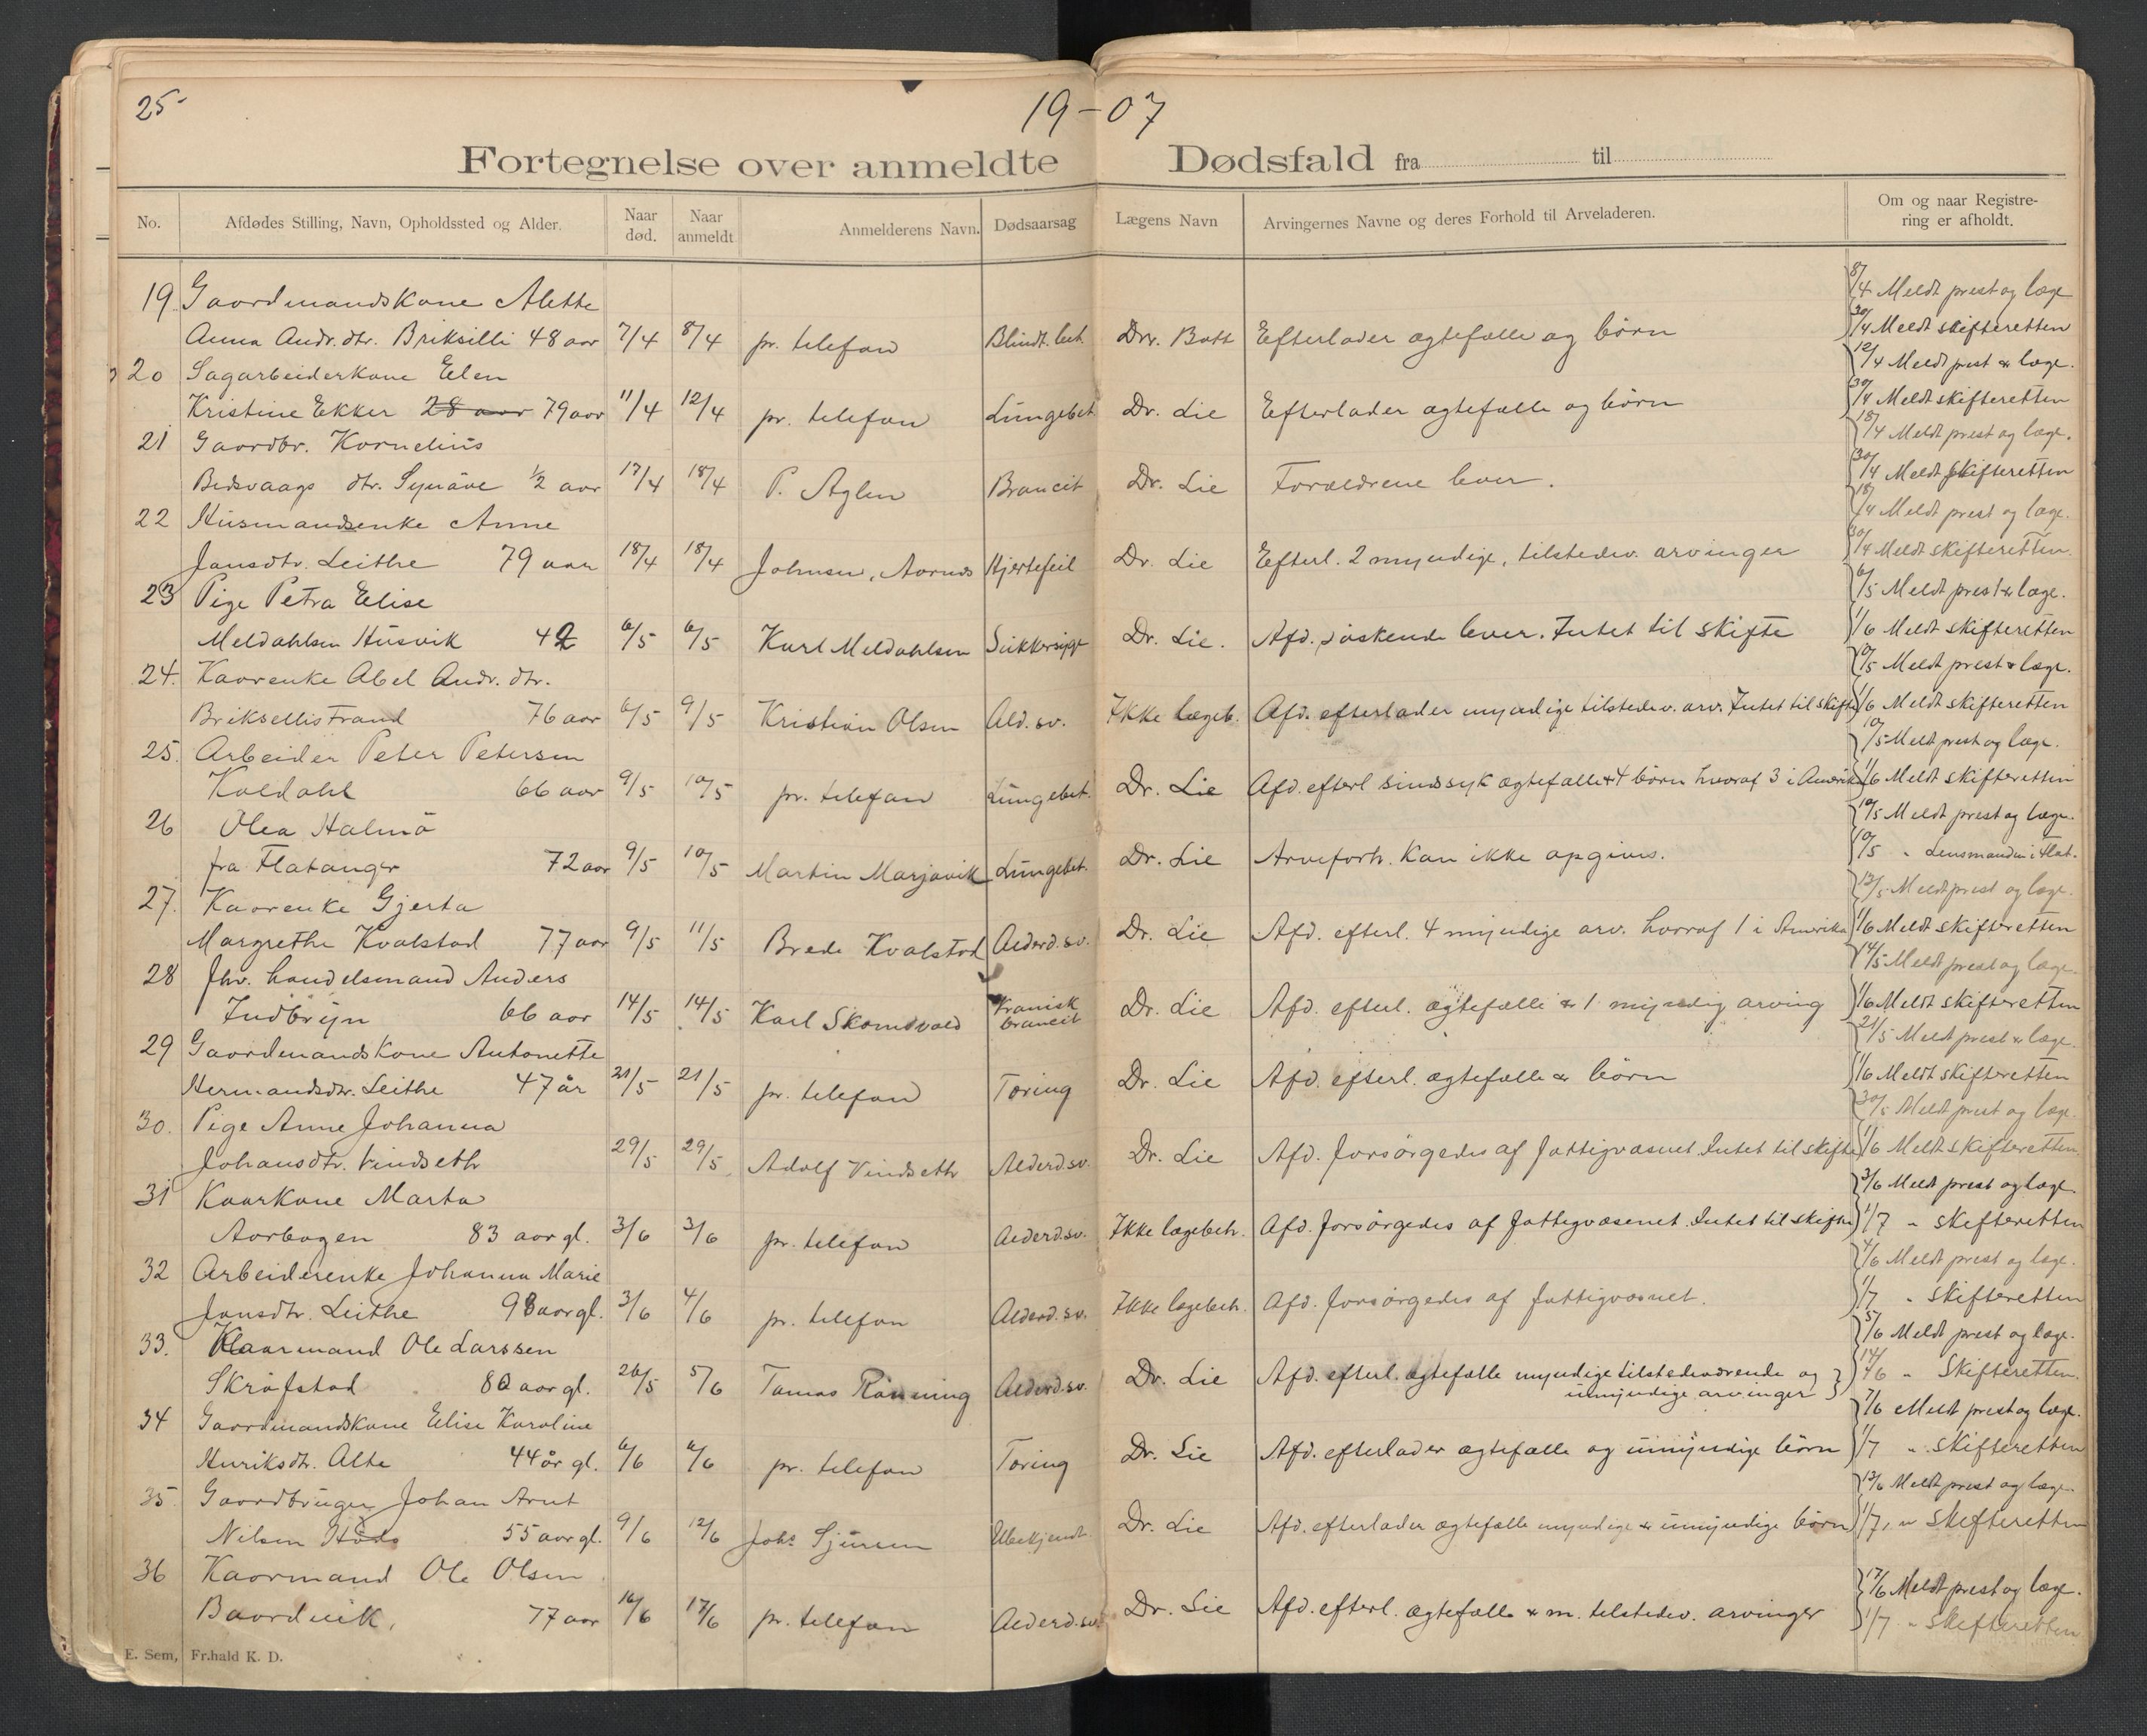 25
19-07
Fortegnelse over anmeldte Dødsfald fra til
No. Afdødes Stilling, Navn, Opholdssted og Alder. Naar død. Naar anmeldt Anmelderens Navn. Dødsaarsag Lægens Navn Arvingernes Navne og deres Forhold til Arveladeren. Om og naar Registrering er afholdt.
19 Gaardmandskone Alette 8/4 Meldt prest og læge
Anna Andr. dtr. Briksilli 48 aar 7/4 8/4 pr. telefon Blindt. bet. Dr. Batt Efterlader ægtefælle og börn 30/4 Meldt skifteretten
20 Sagarbeiderkone Elen 12/4 Meldt prest & læge.
Kristine Ekker 28 aar 79 aar 11/4 12/4 pr. telefon Lungebet. Dr. Lie Efterlader ægtefælle og börn 30/4 Meldt skifteretten
21 Gaardbr. Kornelius 18/4 Meldt prest og læge.
Bedsvaags dtr. Synöve 1/2 aar 17/4 18/4 P. Aglen Broncit Dr. Lie Forældrene lever. 30/4 Meldt skifteretten
22 Husmandsenke Anne 18/4 Meldt prest og læge.
Jansdtr. Leithe 79 aar 18/4 18/4 Johnsen, Aarnes Hjertefeil Dr. Lie Efterl. 2 myndige, tilstedev. arvinger 30/4 Meldt skifteretten.
23 Pige Petra Elise 6/5 Meldt prest & læge.
Meldahlsen Husvik 42 6/5 6/5 Karl Meldahlsen Sukkersyge Dr. Lie. Afd. söskende lever. Intet til skifte 1/6 Meldt skifteretten
24. Kaarenke Abel Andr. dtr. 10/5 Meldt prest & læge.
Briksellistrand 76 aar 6/5 9/5 Kristian Olsen Ald. sv. Ikke lægeb. Afd. efterlader myndige tilstedev. arv. Intet til skifte 1/6 Meldt skifteretten
25. Arbeider Peter Petersen 10/5 Meldt prest og læge.
Koldahl 66 aar 9/5 10/5 pr. telefon Lungebet. Dr. Lie Afd. efterl sindssyk ægtefælle & 4 börn hvoraf 3 i Amerika 1/6 Meldt skifteretten
26 Olea Halmö 10/5 Meldt prest og læge.
fra Flatanger 72 aar 9/5 10/5 Martin Marjavik Lungebet. Dr. Lie Arveforh. kan ikke opgives. 10/5 " Lensmanden i Flat.
27. Kaarenke Gjerta 13/5 Meldt prest og læge.
Margrethe Kvalstad 77 aar 9/5 11/5 Brede Kvalstad Alderd. sv. Dr. Lie Afd. efterl. 4 myndige arv. hvoraf 1 i Amerika 1/6 Meldt skifteretten
28 Fhv. handelsmand Anders 14/5 Meldt prest og læge.
Indbryn 66 aar 14/5 14/5 Karl Skomsvold Kronisk broncit Dr. Lie Afd. efterl. ægtefælle & 1 myndig arving 1/6 Meldt skifteretten
29 Gaardmandskone Antonette 21/5 Meldt prest & læge.
Hermandsdtr. Leithe 47 år 21/5 21/5 pr. telefon Tæring Dr. Lie Afd. efterl. ægtefælle & börn 1/6 Meldt skifteretten
30. Pige Anne Johanna 30/5 Meldt prest og læge.
Johansdtr. Vindseth 29/5 29/5 Adolf Vindseth Alderd. sv. Dr. Lie Afd. forsörgedes af fattigvæsnet. Intet til skifte 1/6 Meldt skifteretten
31 Kaarkone Marta 3/6 Meldt prest og læge.
Aarbogen 83 aar gl. 3/6 3/6 pr. telefon Alderd. sv. Ikke lægebeh. Afd. forsörgedes af fattigvæsenet. Intet til skifte 1/7 " skifteretten
32 Arbeiderenke Johanna Marie 4/6 Meldt prest og læge.
Jansdtr. Leithe 98 aar gl. 3/6 4/6 pr. telefon Alderd. sv. Ikke lægebeh. Afd. forsörgedes af fattigvæsnet. 1/7 " skifteretten
33. Kaarmand Ole Larssen 5/6 Meldt prest og læge.
Skröfstad 80 aar gl. 26/5 5/6 Tomas Rönning Alderd. sv. Dr. Lie Afd. efterl. ægtefælle myndige tilstedeværende og 14/6 " Skifteretten.
umyndige arvinger
34 Gaardmandskone Elise Karoline 7/6 Meldt prest og læge.
Henriksdtr. Alte 44 år gl. 6/6 6/6 pr. telefon Tæring Dr. Lie Afd. efterlader ægtefælle og umyndige börn 1/7 " Skifteretten
35 Gaardbruger Johan Arnt 13/6 Meldt prest og læge.
Nilsen 55 aar gl. 9/6 12/6 Johs Sjursen Ubekjendt Dr. Lie Afd. efterlader ægtefælle myndige & umyndige börn 1/7, " skifteretten
36 Kaarmand Ole Olsen 17/6 Meldt prest og læge.
Baardvik, 77 aar 16/6 17/6 pr. telefon Alderd. sv. Dr. Lie Afd. efterl. ægtefælle & m. tilstedev. arvinger 1/7 " skifteretten
E. Sem, Fr.hald K. D.